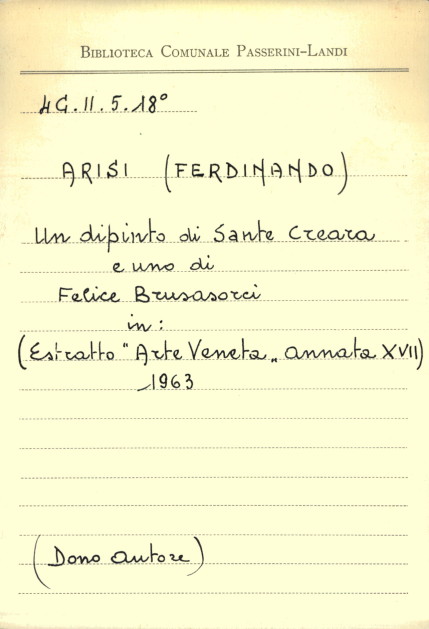 BIBLIOTECA COMUNALE PASSERINI-LANDI
4G.II.5.18°
ARISI (FERDINANDO)
Un dipinto di Sante Creara
e uno di
Felice Brusasorci
in:
(Estratto "Arte Veneta„ annata XVII)
1963
(Dono autore)